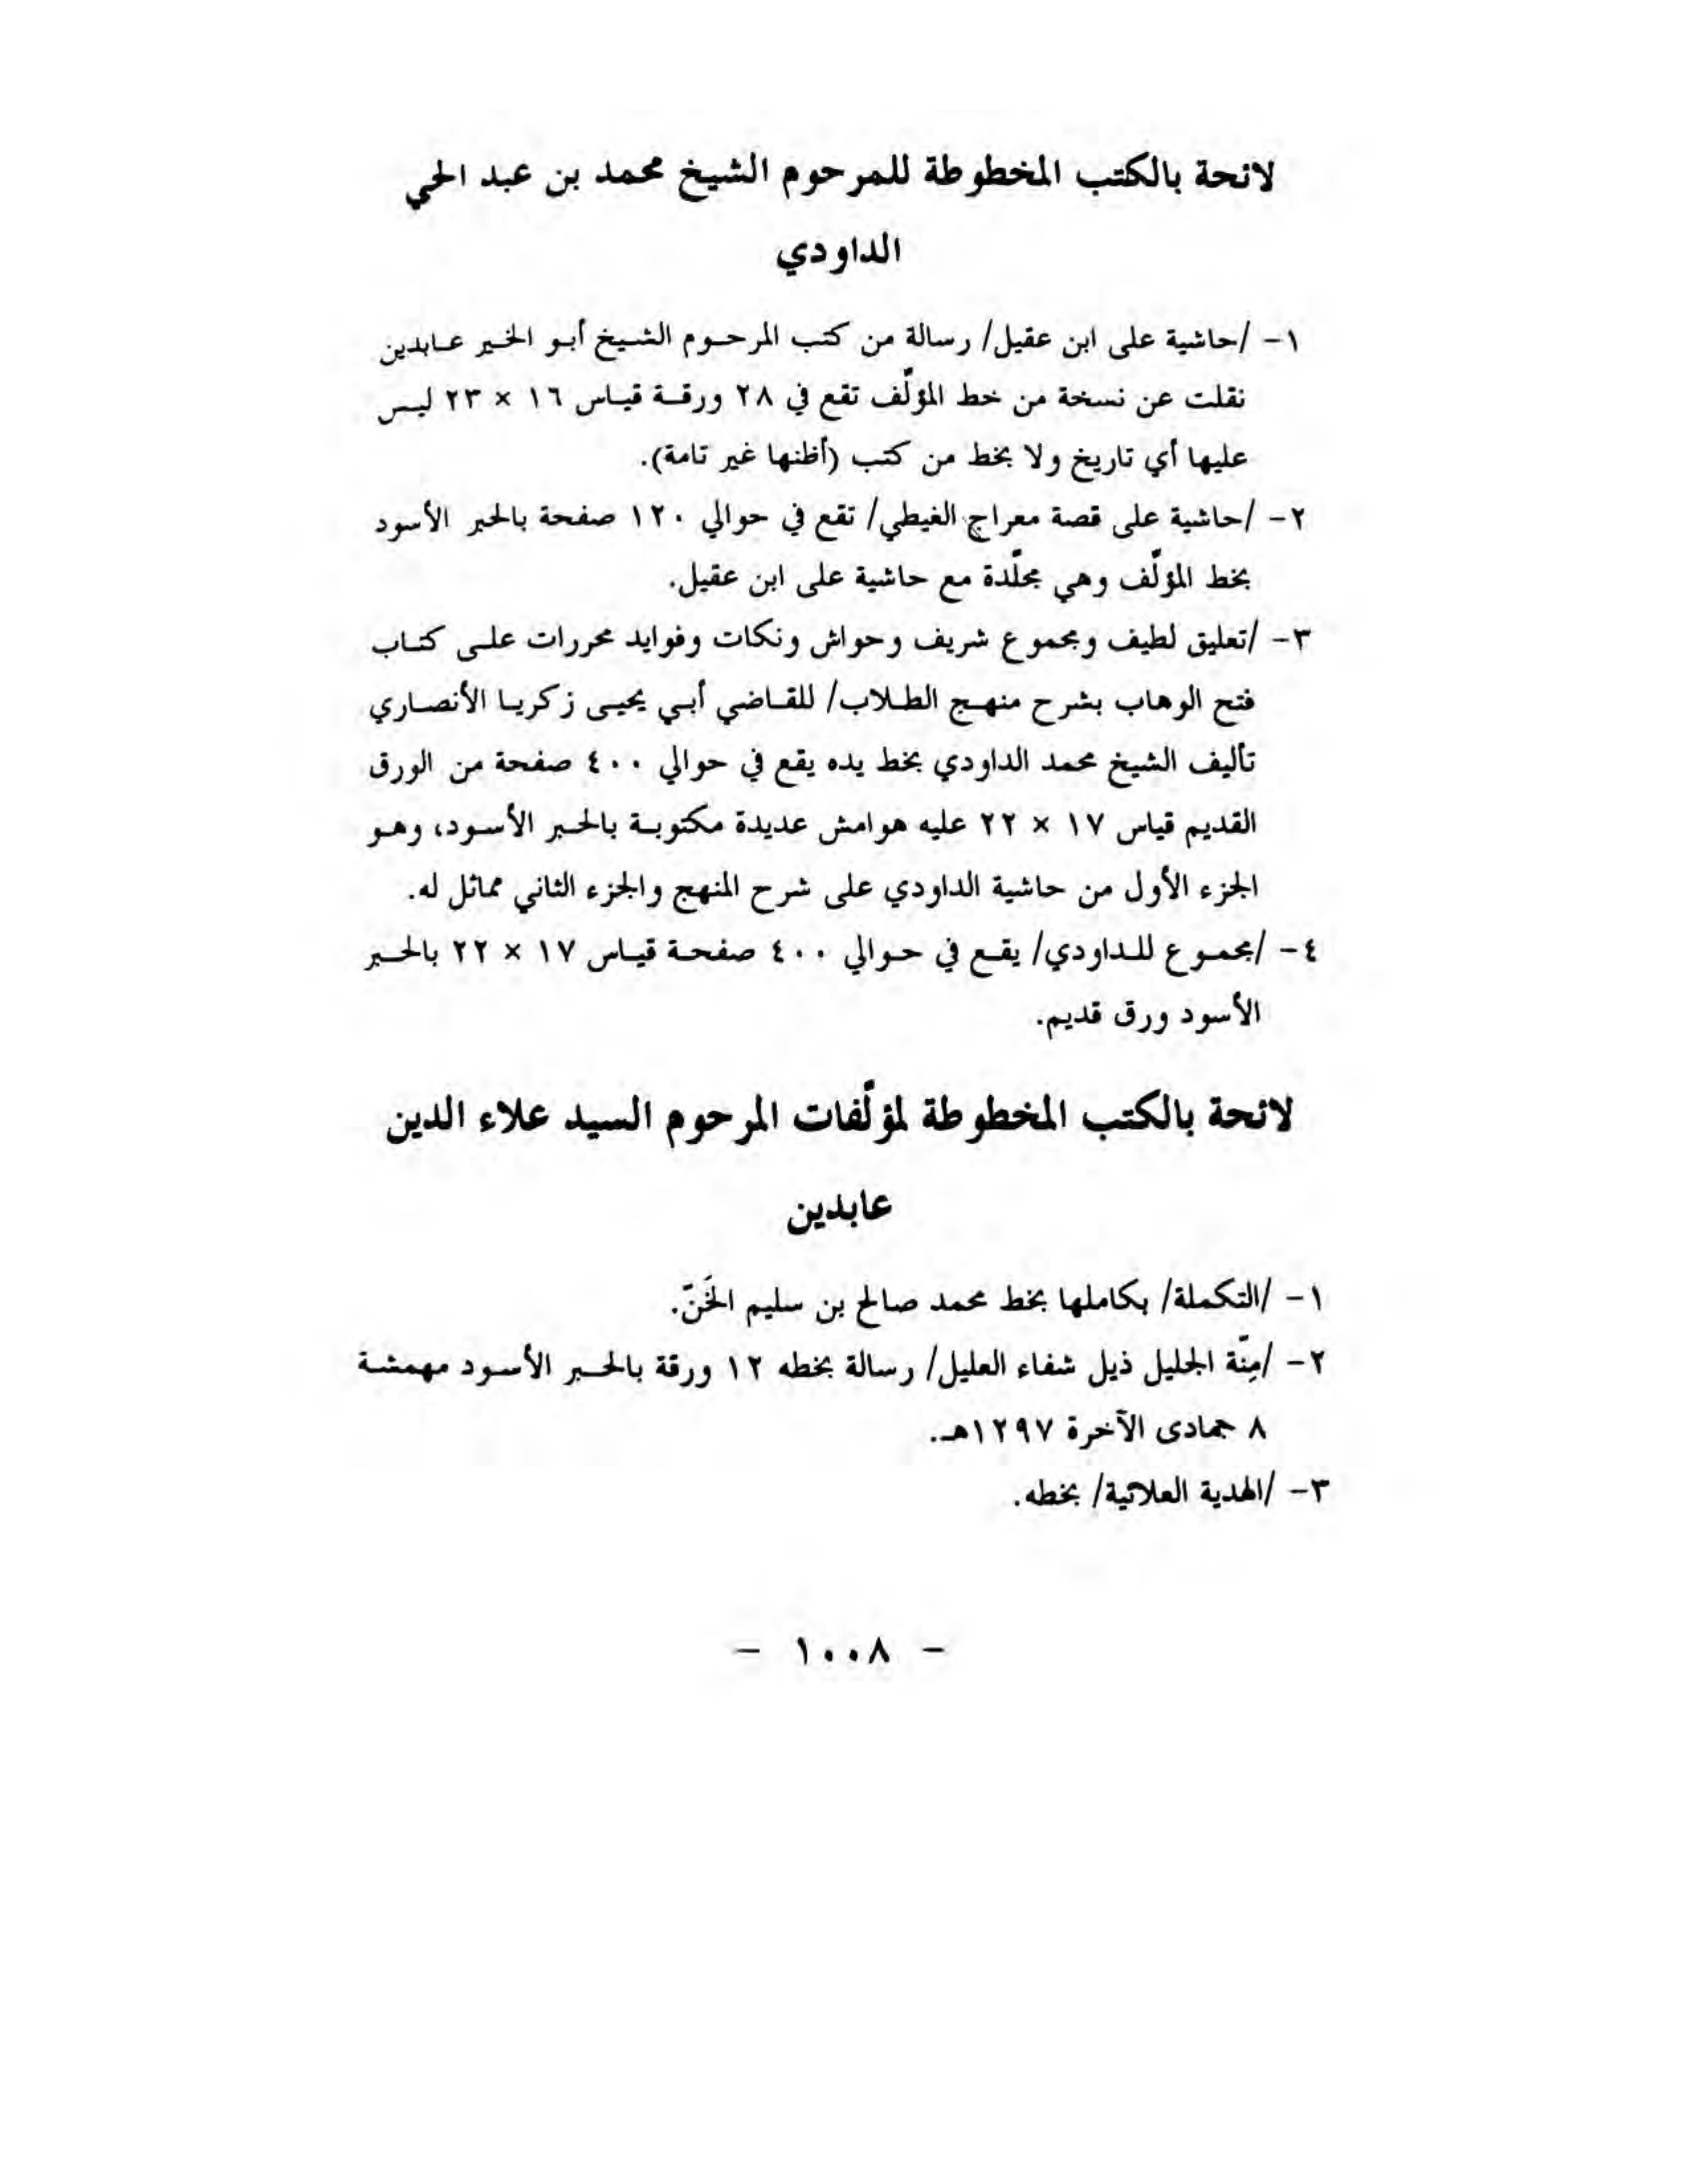 لائحة بالكتب المخطوطة للمرحوم الشيخ محمد بن عبد الحي
الداودي
١- /حاشية على ابن عقيل/ رسالة من كتب المرحوم الشيخ أبو الخير عابدين
نقلت عن نسخة من خط المؤلّف تقع في ٢٨ ورقة قياس ١٦ × ٢٣ ليس
عليها أي تاريخ ولا بخط من كتب (أظنها غير تامة).
٢- /حاشية على قصة معراج الغيطي/ تقع في حوالي ١٢٠ صفحة بالحبر الأسود
بخط المؤلّف وهي مجلّدة مع حاشية على ابن عقيل.
٣- /تعليق لطيف ومجموع شريف وحواش ونكات وفوايد محررات على كتاب
فتح الوهاب بشرح منهج الطلاب/ للقاضي أبي يحيى زكريا الأنصاري
تأليف الشيخ محمد الداودي بخط يده يقع في حوالي ٤٠٠ صفحة من الورق
القديم قياس ١٧ × ٢٢ عليه هوامش عديدة مكتوبة بالحبر الأسود، وهو
الجزء الأول من حاشية الداودي على شرح المنهج والجزء الثاني مماثل له.
٤- /مجموع للداودي/ يقع في حوالي ٤٠٠ صفحة قياس ١٧ × ٢٢ بالحبر
الأسود ورق قديم.
لائحة بالكتب المخطوطة لمؤلّفات المرحوم السيد علاء الدين
عابدين
١- /التكملة/ بكاملها بخط محمد صالح بن سليم الخَنّ.
٢- /مِنّة الجليل ذيل شفاء العليل/ رسالة بخطه ١٢ ورقة بالحبر الأسود مهمشة
٨ جمادى الآخرة ١٢٩٧هـ.
٣- /الهدية العلائية/ بخطه.
- ١٠٠٨ -